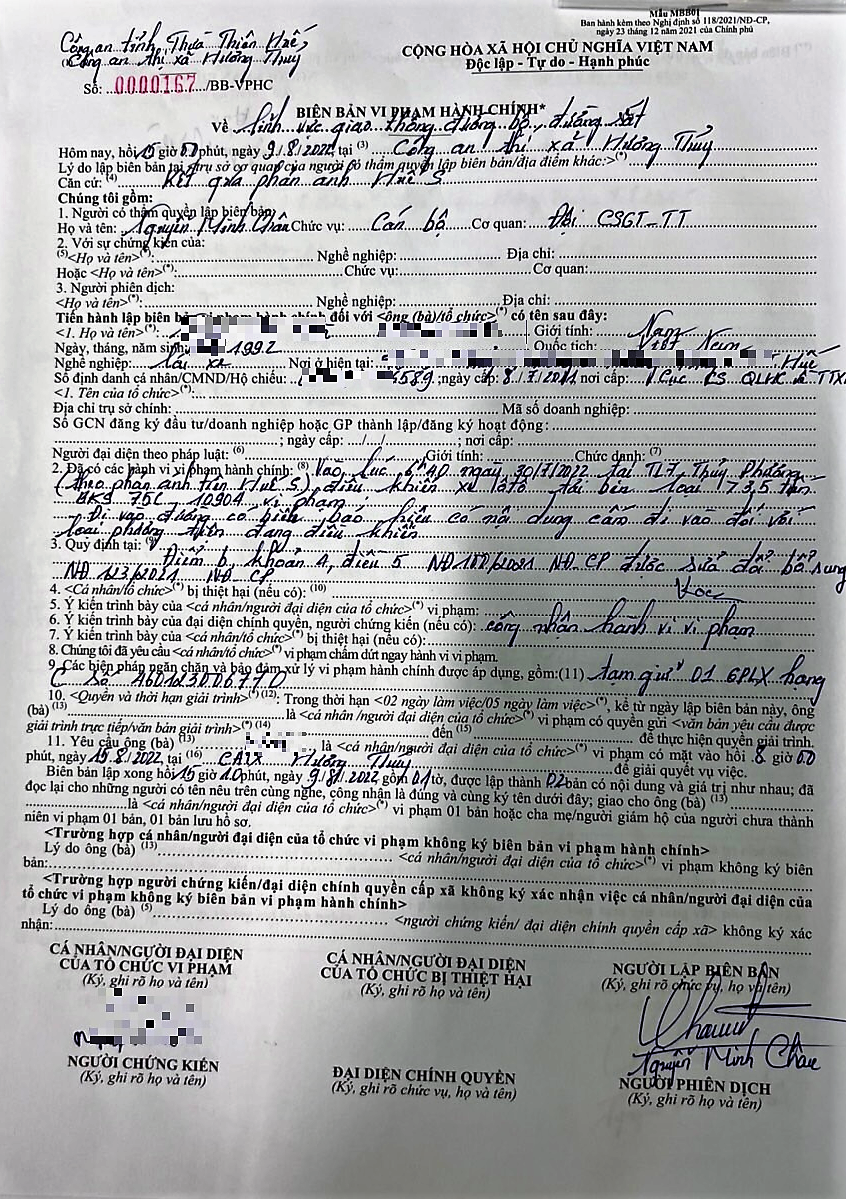 Mẫu MBB01
Ban hành kèm theo Nghị định số 118/2021/NĐ-CP,
ngày 23 tháng 12 năm 2021 của Chính phủ
Công an tỉnh Thừa Thiên Huế
Công an thị xã Hương Thủy
Số: 0000167/BB-VPHC
CỘNG HÒA XÃ HỘI CHỦ NGHĨA VIỆT NAM
Độc lập - Tự do - Hạnh phúc
BIÊN BẢN VI PHẠM HÀNH CHÍNH*
Về lĩnh vực giao thông đường bộ, đường sắt
Hôm nay, hồi 15 giờ 00 phút, ngày 9/8/2022, tại (3) Công an thị xã Hương Thủy
Lý do lập biên bản tại <trụ sở cơ quan của người có thẩm quyền lập biên bản/địa điểm khác>(*)
Căn cứ: (4) Kết quả phản ánh Huế S
Chúng tôi gồm:
1. Người có thẩm quyền lập biên bản:
Họ và tên: Nguyễn Minh Châu Chức vụ: Cán bộ Cơ quan: Đội CSGT-TT
2. Với sự chứng kiến của:
(5)<Họ và tên>(*): Nghề nghiệp: Địa chỉ:
Hoặc <Họ và tên>(*): Chức vụ: Cơ quan:
3. Người phiên dịch:
<Họ và tên>(*): Nghề nghiệp: Địa chỉ:
Tiến hành lập biên bản vi phạm hành chính đối với <ông (bà)/tổ chức>(*) có tên sau đây:
<1. Họ và tên>(*): Giới tính: Nam
Ngày, tháng, năm sinh: 1992 Quốc tịch: Việt Nam
Nghề nghiệp: Lái xe Nơi ở hiện tại: Huế
Số định danh cá nhân/CMND/Hộ chiếu: 589; ngày cấp: 8/7/2021 nơi cấp: Cục CS QLHC về TTXH
<1. Tên của tổ chức>(*):
Địa chỉ trụ sở chính: Mã số doanh nghiệp:
Số GCN đăng ký đầu tư/doanh nghiệp hoặc GP thành lập/đăng ký hoạt động:
; ngày cấp: .../.../...; nơi cấp:
Người đại diện theo pháp luật: (6) Giới tính: Chức danh: (7)
2. Đã có các hành vi vi phạm hành chính: (8) Vào lúc 6h40 ngày 30/7/2022 tại TL7 Thủy Phương
(theo phản ánh trên Huế S) điều khiển xe ôtô tải ben loại 17,35 tấn
BKS 75C 10904 vi phạm:
- Đi vào đường có biển báo hiệu có nội dung cấm đi vào đối với
loại phương tiện đang điều khiển
3. Quy định tại: (9)
Điểm b, khoản 4, điều 5 NĐ 100/2021 NĐ.CP được sửa đổi bổ sung
NĐ 123/2021 NĐ CP
4. <Cá nhân/tổ chức>(*) bị thiệt hại (nếu có): (10)
5. Ý kiến trình bày của <cá nhân/người đại diện của tổ chức>(*) vi phạm:
6. Ý kiến trình bày của đại diện chính quyền, người chứng kiến (nếu có): công nhận hành vi vi phạm
7. Ý kiến trình bày của <cá nhân/tổ chức>(*) bị thiệt hại (nếu có):
8. Chúng tôi đã yêu cầu <cá nhân/tổ chức>(*) vi phạm chấm dứt ngay hành vi vi phạm.
9. Các biện pháp ngăn chặn và bảo đảm xử lý vi phạm hành chính được áp dụng, gồm:(11) tạm giữ 01 GPLX hạng
C số A601213006770
10. <Quyền và thời hạn giải trình>(*) (12): Trong thời hạn <02 ngày làm việc/05 ngày làm việc>(*), kể từ ngày lập biên bản này, ông
(bà) (13) là <cá nhân/người đại diện của tổ chức>(*) vi phạm có quyền gửi <văn bản yêu cầu được
giải trình trực tiếp/văn bản giải trình>(*) (14) đến (15) để thực hiện quyền giải trình.
11. Yêu cầu ông (bà) (13) là <cá nhân/người đại diện của tổ chức>(*) vi phạm có mặt vào hồi 8 giờ 00
phút, ngày 15/8/2022, tại (16) CATX Hương Thủy để giải quyết vụ việc.
Biên bản lập xong hồi 15 giờ 10 phút, ngày 9/8/2022 gồm 01 tờ, được lập thành 02 bản có nội dung và giá trị như nhau; đã
đọc lại cho những người có tên nêu trên cùng nghe, công nhận là đúng và cùng ký tên dưới đây; giao cho ông (bà) (13)
là <cá nhân/người đại diện của tổ chức>(*) vi phạm 01 bản hoặc cha mẹ/người giám hộ của người chưa thành
niên vi phạm 01 bản, 01 bản lưu hồ sơ.
<Trường hợp cá nhân/người đại diện của tổ chức vi phạm không ký biên bản vi phạm hành chính>
Lý do ông (bà) (13) <cá nhân/người đại diện của tổ chức>(*) vi phạm không ký biên
bản:
<Trường hợp người chứng kiến/đại diện chính quyền cấp xã không ký xác nhận việc cá nhân/đại diện của
tổ chức vi phạm không ký biên bản vi phạm hành chính>
Lý do ông (bà) (5) <người chứng kiến/ đại diện chính quyền cấp xã> không ký xác
nhận:
CÁ NHÂN/NGƯỜI ĐẠI DIỆN
CỦA TỔ CHỨC VI PHẠM
(Ký, ghi rõ họ và tên)
CÁ NHÂN/NGƯỜI ĐẠI DIỆN
CỦA TỔ CHỨC BỊ THIỆT HẠI
(Ký, ghi rõ họ và tên)
NGƯỜI LẬP BIÊN BẢN
(Ký, ghi rõ chức vụ, họ và tên)
Nguyễn Minh Châu
NGƯỜI CHỨNG KIẾN
(Ký, ghi rõ họ và tên)
ĐẠI DIỆN CHÍNH QUYỀN
(Ký, ghi rõ chức vụ, họ và tên)
NGƯỜI PHIÊN DỊCH
(Ký, ghi rõ họ và tên)